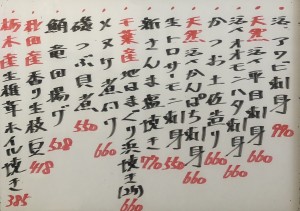 活アワビ刺身 990
天然 活イオモンハタ刺身 660
天然 活平目刺身 660
かつお土佐造り 660
天然 活かんぱち刺身 660
生トロサーモン刺身 550
新さんま塩焼き 770
千葉産 地はまぐり浜焼き(2ヶ) 660
メヌケ煮付け 660
磯つぶ貝煮 550
鮪竜田揚げ 528
秋田産 香り生枝豆 418
栃木産 生椎茸ホイル焼き 385